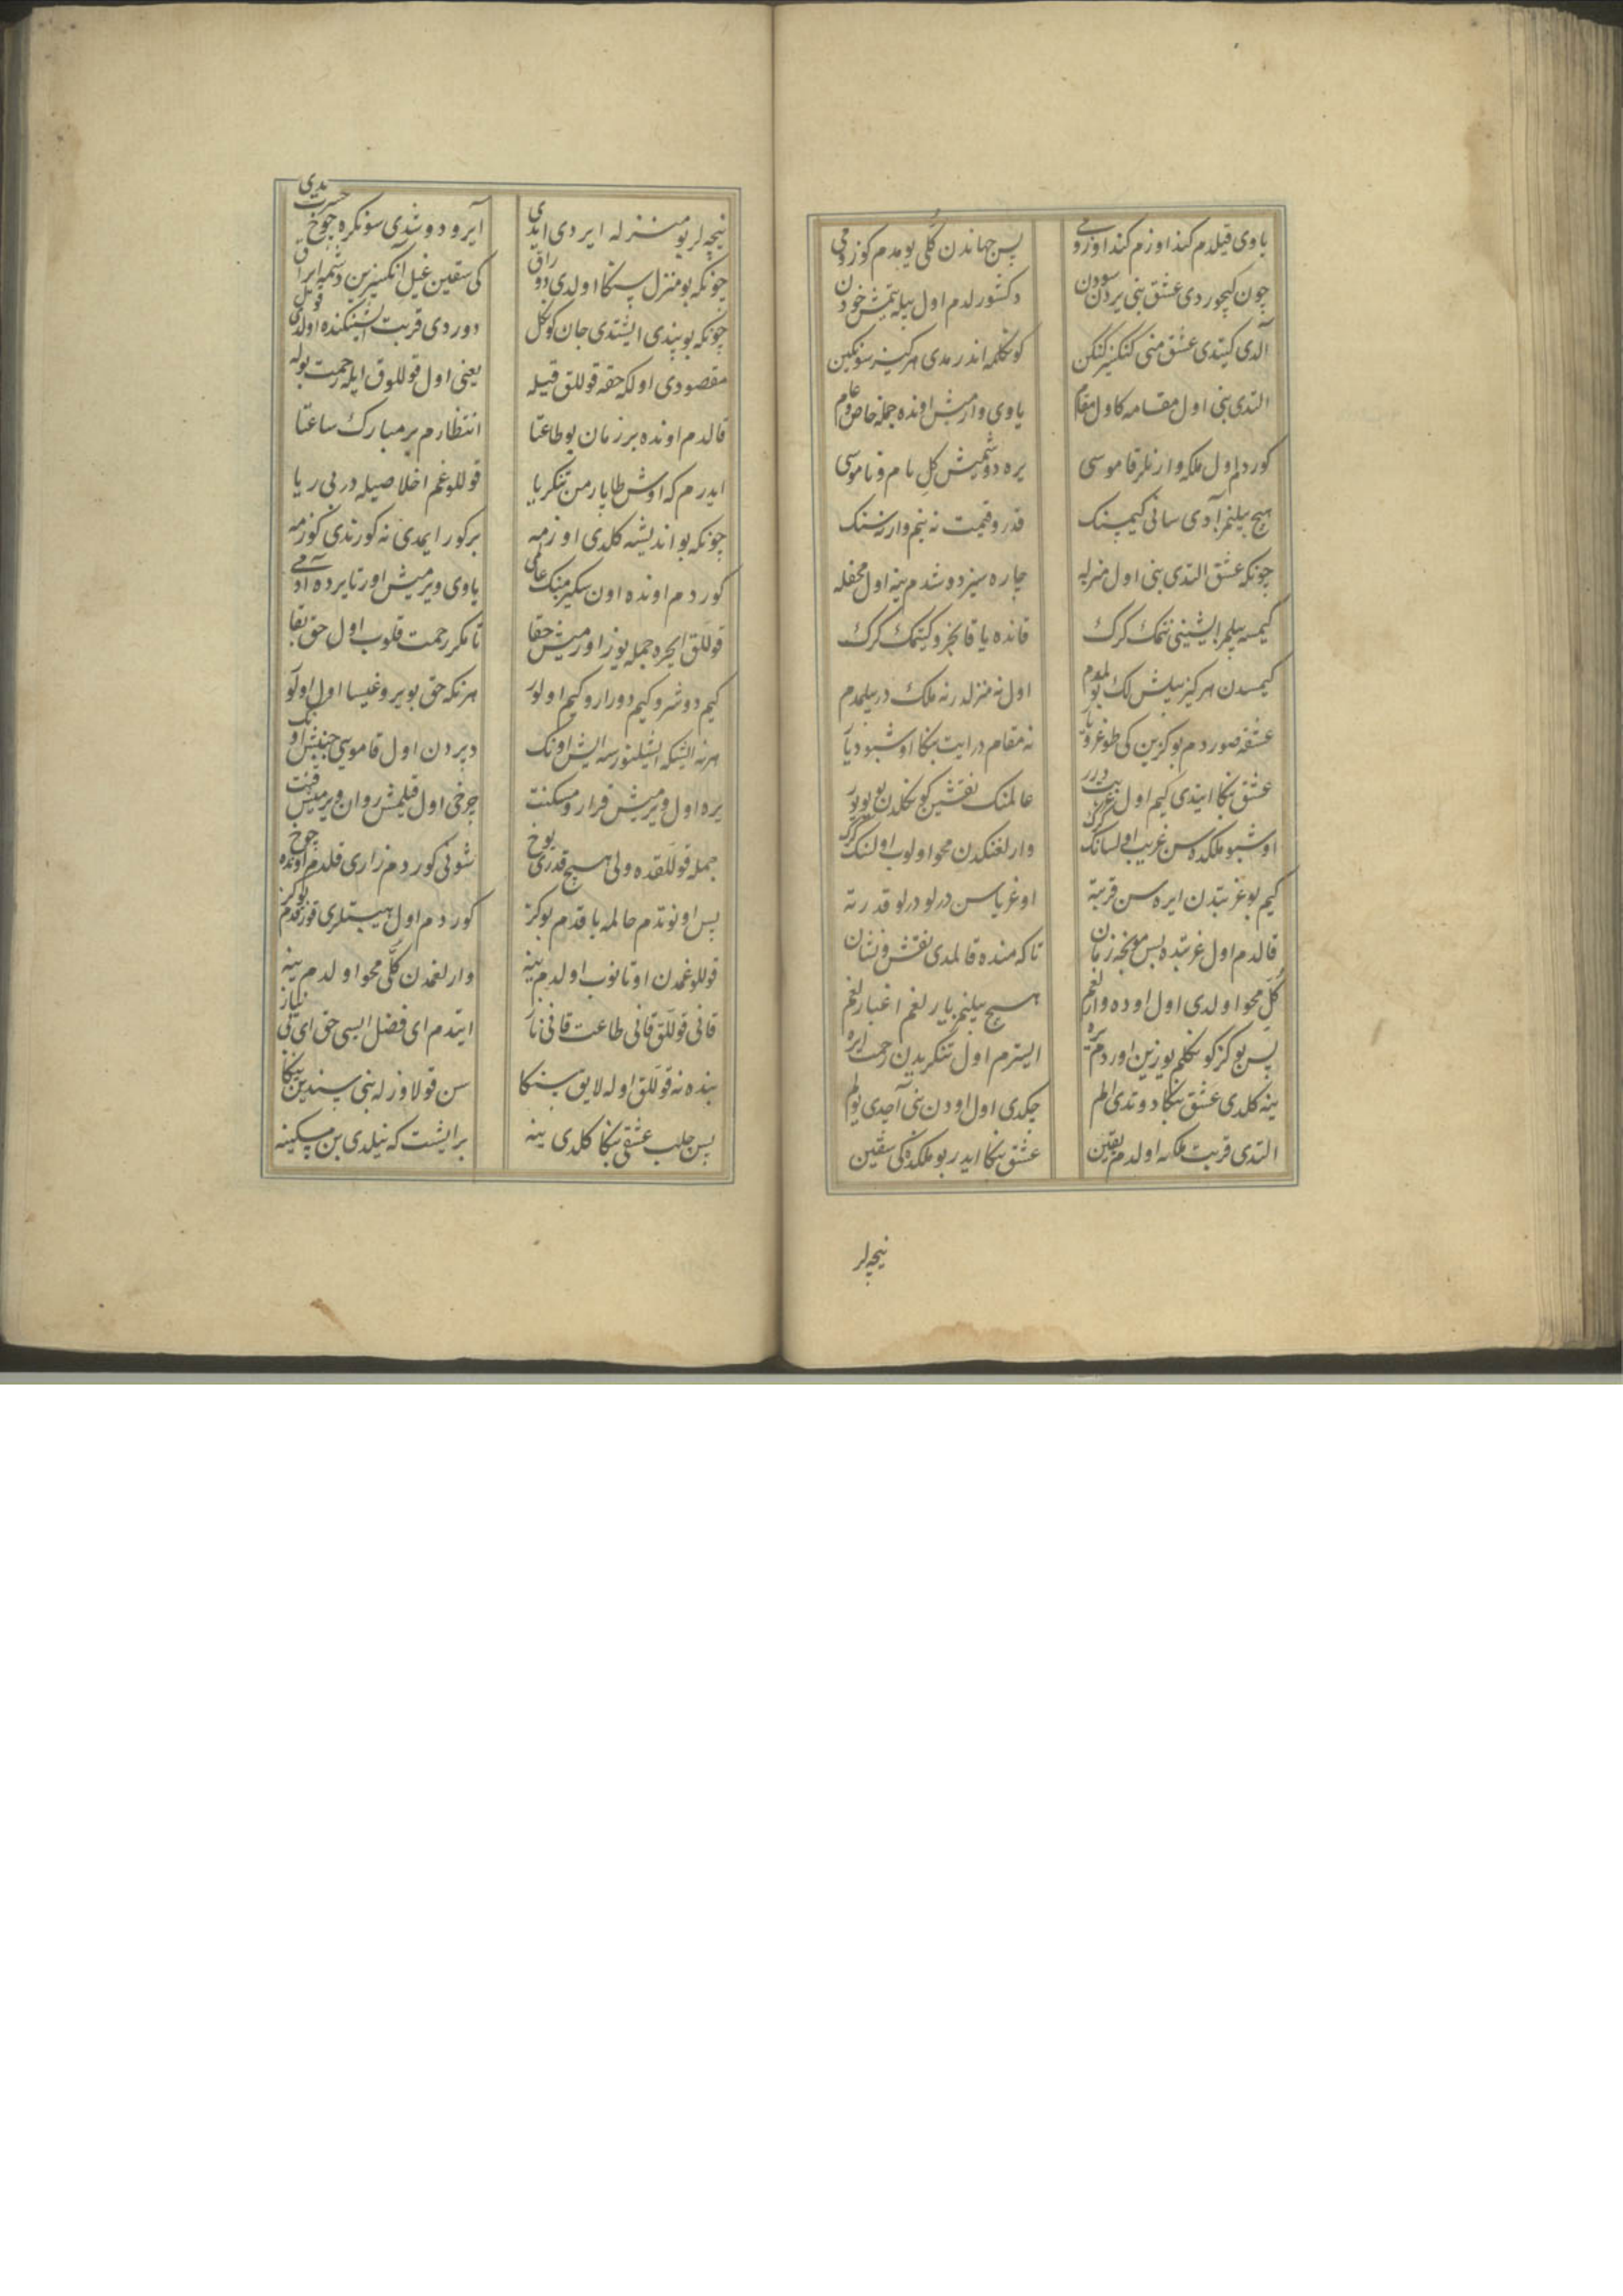 یاوی قیلدم کنداوزم کنداوزمی پس جهاندن کلی یومدم کوزومی
چون کیچوردی عشق بنی یردن سودن دکشورلدم اول بیله یتمش خودن
آلدی کیتدی عشق منی کنکیز کنکن کونکلمه اندرمدی هرکیز سونکین
التدی بنی اول مقامه کاول مقام یاوی وارمش انده جمله خاص و عام
کوردم اول ملکه وارنلر قاموسی یره دوشمیش کل نام و ناموسی
هیچ بیلنمز آدی سانی کیمسنک قدر و قیمت نه بنم وار نه سنک
چونکه عشق التدی بنی اول منزله چاره سیز دوشدم ینه اول محفله
کیمسه بیلمز ایشینی نتمک کرک قانده یا قانجرو کیتمک کرک
کیمسدن هرکیز بیلش لک بولمدم اول نه منزلدر نه ملک در بیلمدم
عشقه صوردم بو کزین کی طوغرو یار نه مقام در ایت بنکا اوشبو دیار
عشق بنکا ایتدی کیم اول غربت درر عالمنک نقشین کونکلدن یویور
اوشبو ملکده سن غریب اولسانک کرک وارلغنکدن محو اولوب اولسنک کرک
کیم بو غربتدن ایره سن قربته اوغریاسن درلو درلو قدرته
قالدم اول غربتده بس مونجه زمان تا که منده قالمدی نقش و نشان
کل محو اولدی اول اوده وارلغم هیچ بیلنمز یارلغم اغیارلغم
پس بو کز کونکلم یوزین اوردم یره ایسترم اول تنکریدن رحمت ایره
ینه کلدی عشق بنکا دوتدی الم چکدی اول اودن بنی آچدی یولم
التدی قربت ملکنه اولدم یقین عشق بنکا ایدر بو ملکده کی سقین
نیجه لر
نیجه لر بو منزله ایردی ایدی آیرو دوشدی سونکره چوخ حسرت یدی
چونکه بو منزل سنکا اولدی دوراق کی سقین غیل آنکسیزین دشمه ایراق
چونکه بو پندی ایشتدی جان کونکل دوردی قربت اشنکنده اولدی قول
مقصودی اولکه حقه قوللق قیله یعنی اول قوللوق ایله رحمت بوله
قالدم اونده بر زمان بو طاعتا انتظارم بر مبارک ساعتا
ایدرم که اوش طاپارمن تنکریا قوللوغم اخلاصیله در بی ریا
چونکه بو اندیشه کلدی اوزمه بر کور ایمدی نه کورندی کوزمه
کوردم اونده اون سکیز منک عالمی یاوی ویرمیش اورتا یرده آدمی
قوللق ایچره جمله یوز اورمیش حقا تا مکر رحمت قلوب اول حق بقا
کیم دوشر و کیم دورار و کیم اولور هر نکه حق بویروغیسا اول اولو
هر نه ایشکه ایشلنورسه ایش اونک دپردن اول قاموسی جنبش اونک
یره اول ویرمیش قرار و مسکنت چرخی اول قیلمش روان ویرمیش
جمله قوللقده ولی هیچ قدری یوخ شونی کوردم زاری قلدم اونده چوخ
پس اونوتدم حالمه باقدم بو کز کوردم اول هیبتلری قورخدم بو کز
قوللوغمدن اوتانوب اولدم ینه وارلغمدن کلی محو اولدم ینه
قانی قوللق قانی طاعت قانی ناز ایتدم ای فضل ایسی حق ای بی نیاز
بنده نه قوللق اوله لایق سنکا سن قولاوزله بنی سندین ینکا
پس چلب عشقی بنکا کلدی ینه بر ایشت که نیلدی بن مسکینه